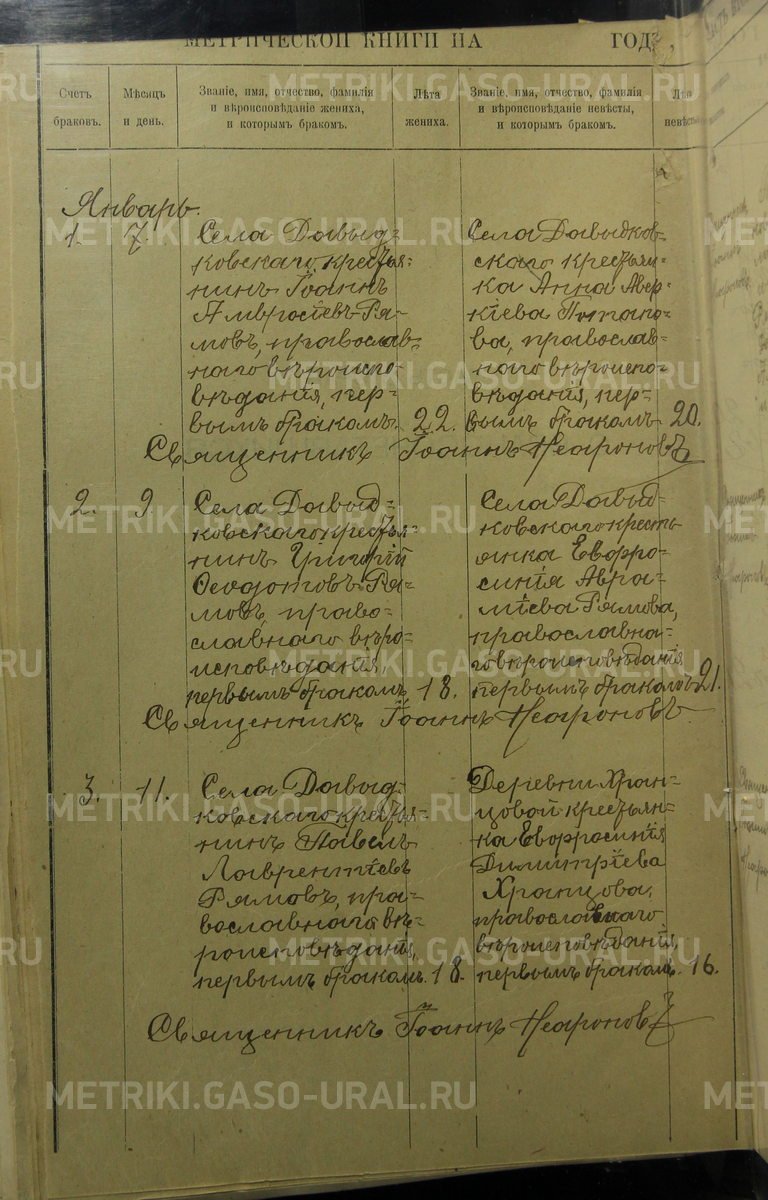 МЕТРИЧЕСКОЙ КНИГИ НА ГОДЪ,
Счетъ браковъ.
Мѣсяцъ и день.
Званіе, имя, отчество, фамилія и вѣроисповѣданіе жениха, и которымъ бракомъ.
Лѣта жениха.
Званіе, имя, отчество, фамилія и вѣроисповѣданіе невѣсты, и которымъ бракомъ.
Январь.
1. 7.
Села Давыд=
ковскаго крестья=
нинъ Іоаннъ
Амвросіевъ Ря-
мовъ, православ-
наго вѣроиспо-
вѣданія, пер-
вымъ бракомъ. 22.
Села Давыдков-
скаго крестьян-
ка Анна Авер-
кіева Потапо-
ва, православ-
наго вѣроиспо-
вѣданія, пер-
вымъ бракомъ 20.
Священникъ Іоаннъ Неароновъ
2. 9
Села Давыд=
ковскаго крестья=
нинъ Григорій
Ѳеодотовъ Ря=
мовъ, право=
славнаго вѣро=
исповѣданія,
первымъ бракомъ 18.
Села Давыд=
ковскаго кресть
янка Евфро=
синія Авра=
міева Рямова,
православна-
го вѣроисповѣданія
первымъ бракомъ 21.
Священникъ Іоаннъ Неароновъ
3. 11.
Села Давыд
ковскаго крестья=
нинъ Павелъ
Лаврентіевъ
Рямовъ, пра-
вославнаго вѣ=
роисповѣданія,
первымъ бракомъ. 18.
Деревни Хран=
цовой крестьян=
ка Евфросинія
Димитріева
Хранцова,
православнаго
вѣроисповѣданія,
первымъ бракомъ. 16.
Священникъ Іоаннъ Неароновъ
METRIKI.GASO-URAL.RU